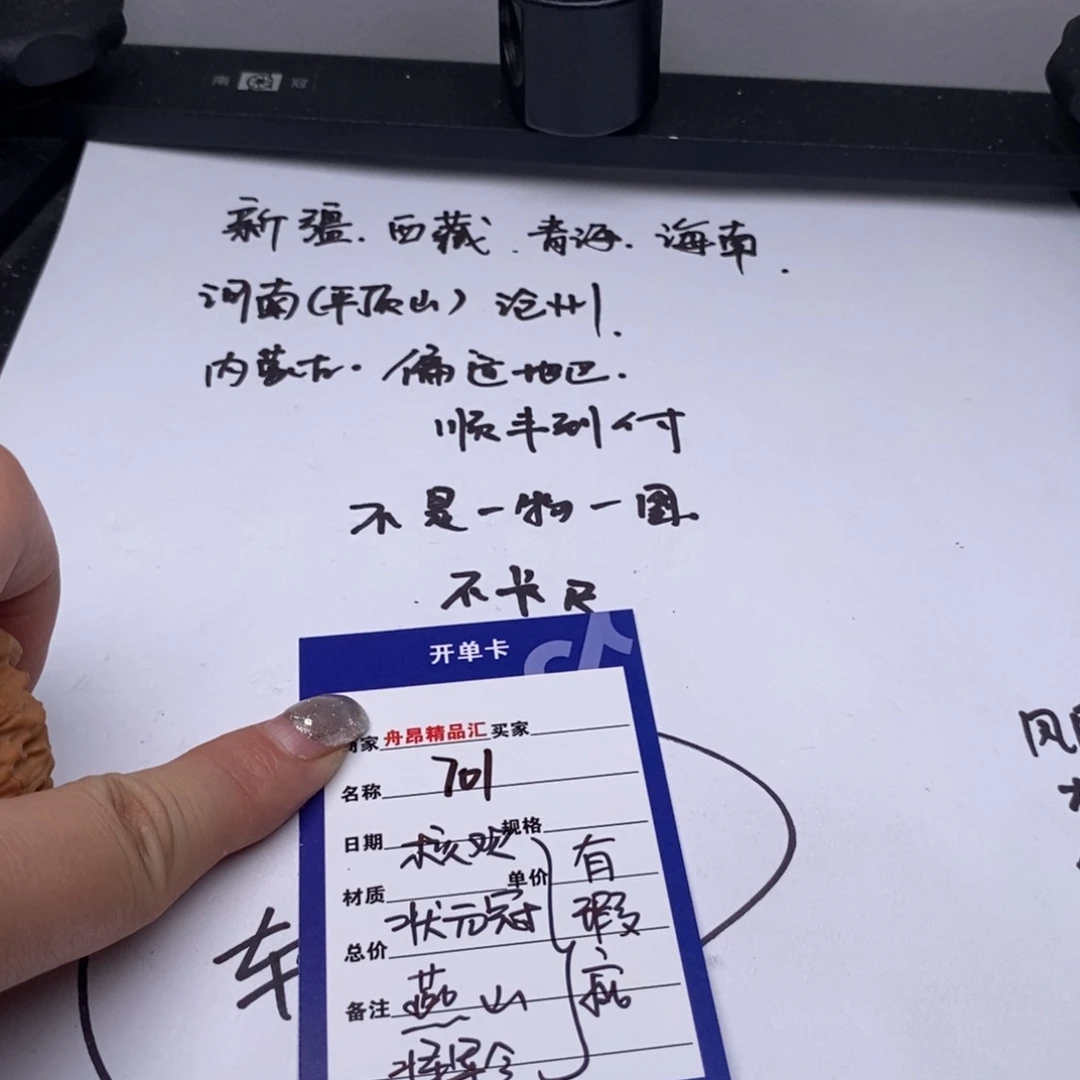 南 冠
新疆.西藏.青海.海南.
河南(平顶山)沧州.
内蒙古.偏远地区.
顺丰到付
不是一物一图
不卡尺
开单卡
家 舟昂精品汇 买家
名称 701
日期 规格
核桃 有
材质 单价
状元冠 瑕
总价
燕山 疵
备注
车
风